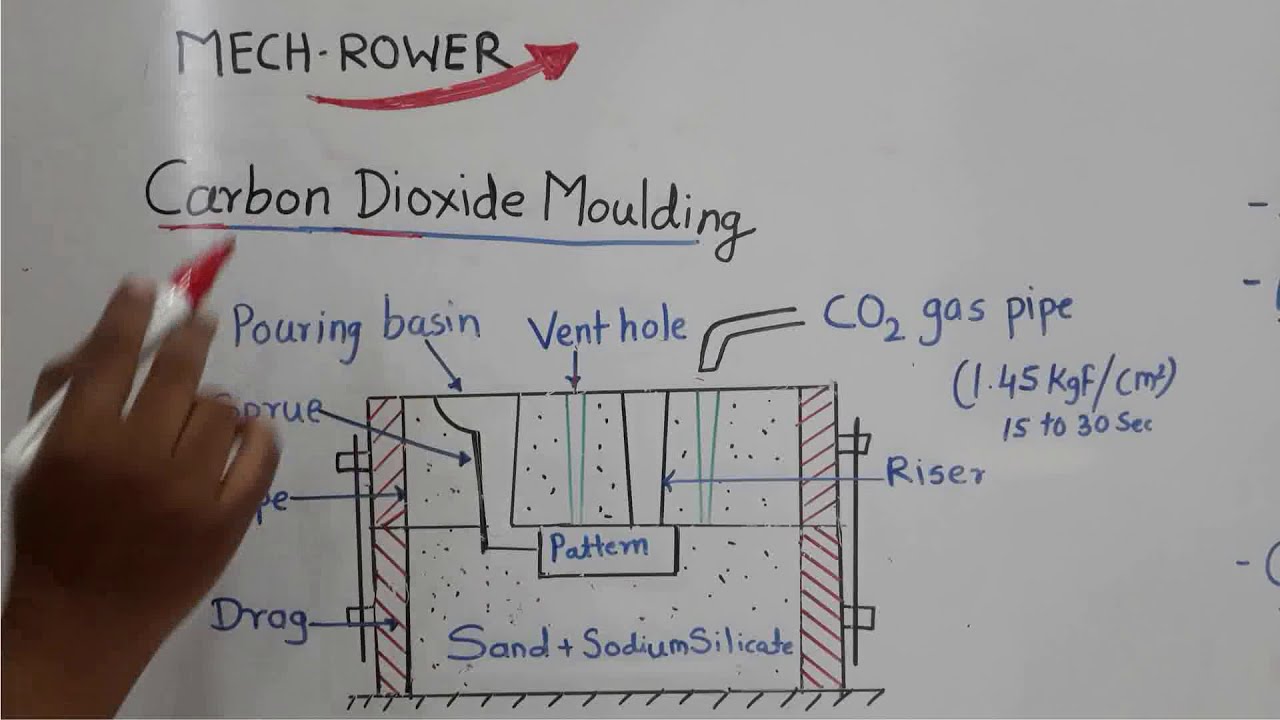 MECH-ROWER
Carbon Dioxide Moulding
Pouring basin
Vent hole
CO₂ gas pipe
(1.45 Kgf/cm²)
15 to 30 Sec
Sprue
Riser
pe
Pattern
Drag
Sand + Sodium Silicate